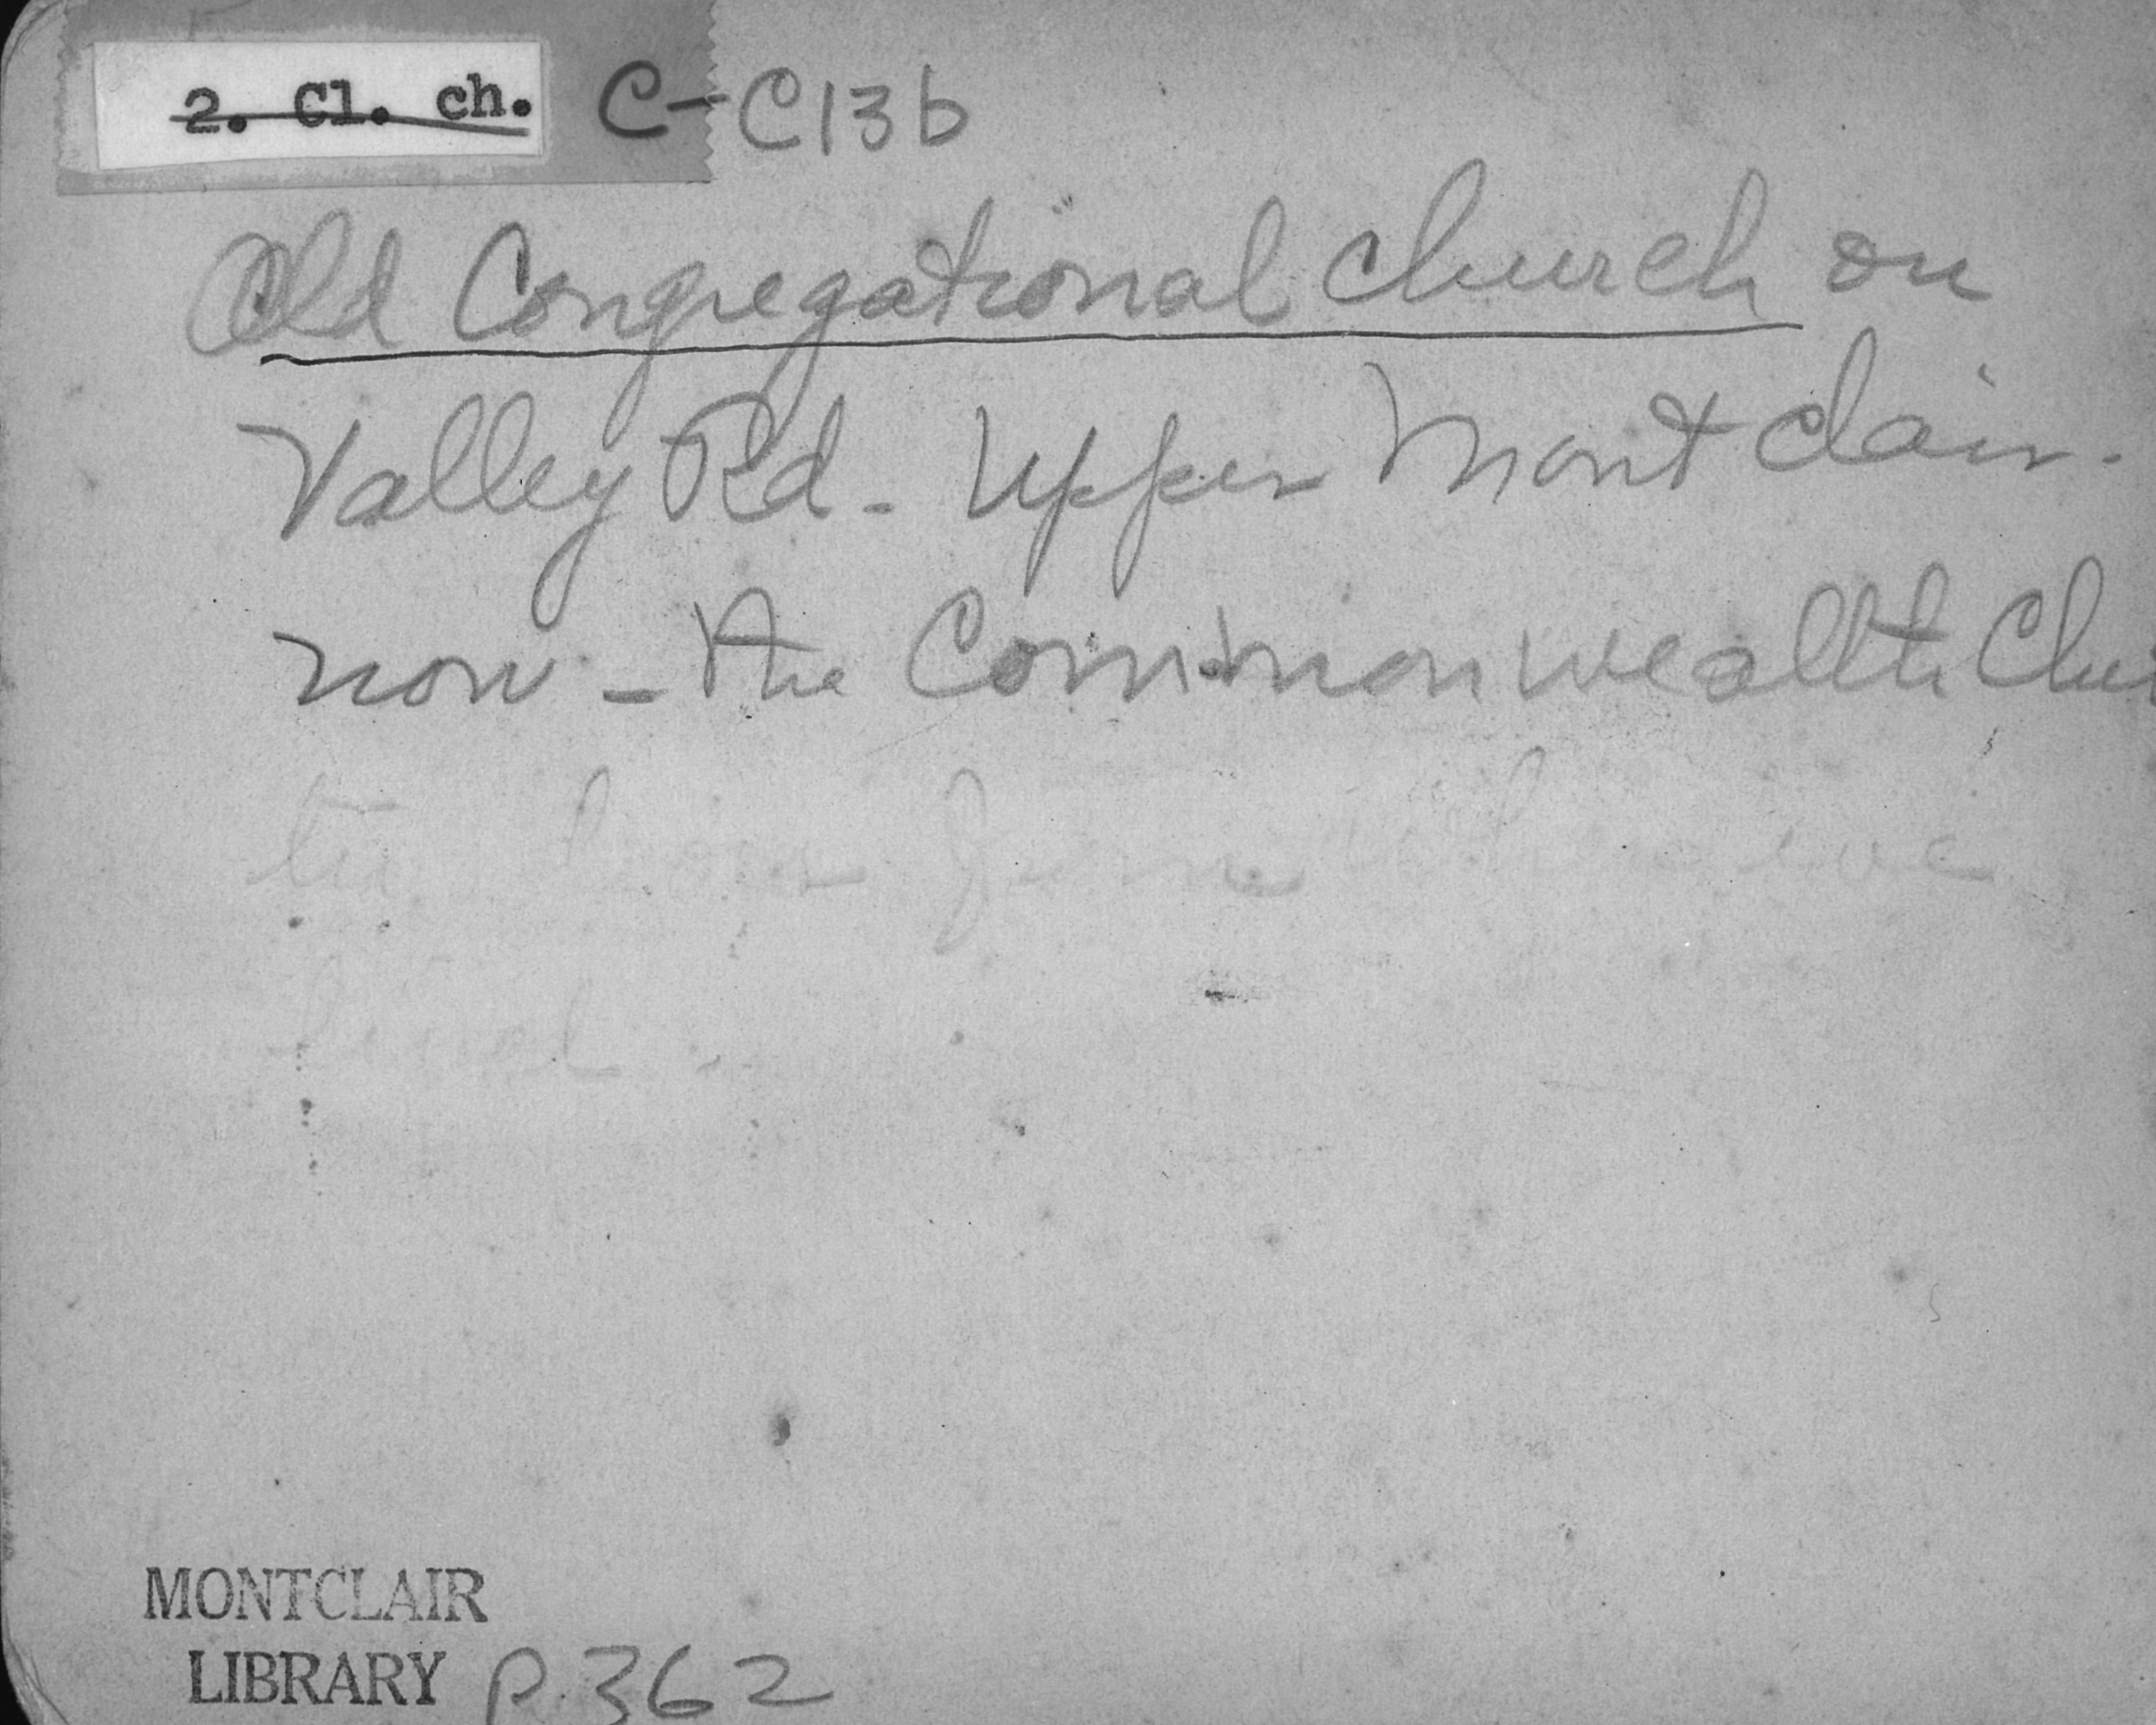 2. Cl. ch. C-C13b
Old Congregational Church on
Valley Rd. Upper Montclair.
now - the Commonwealth
MONTCLAIR
LIBRARY P.362